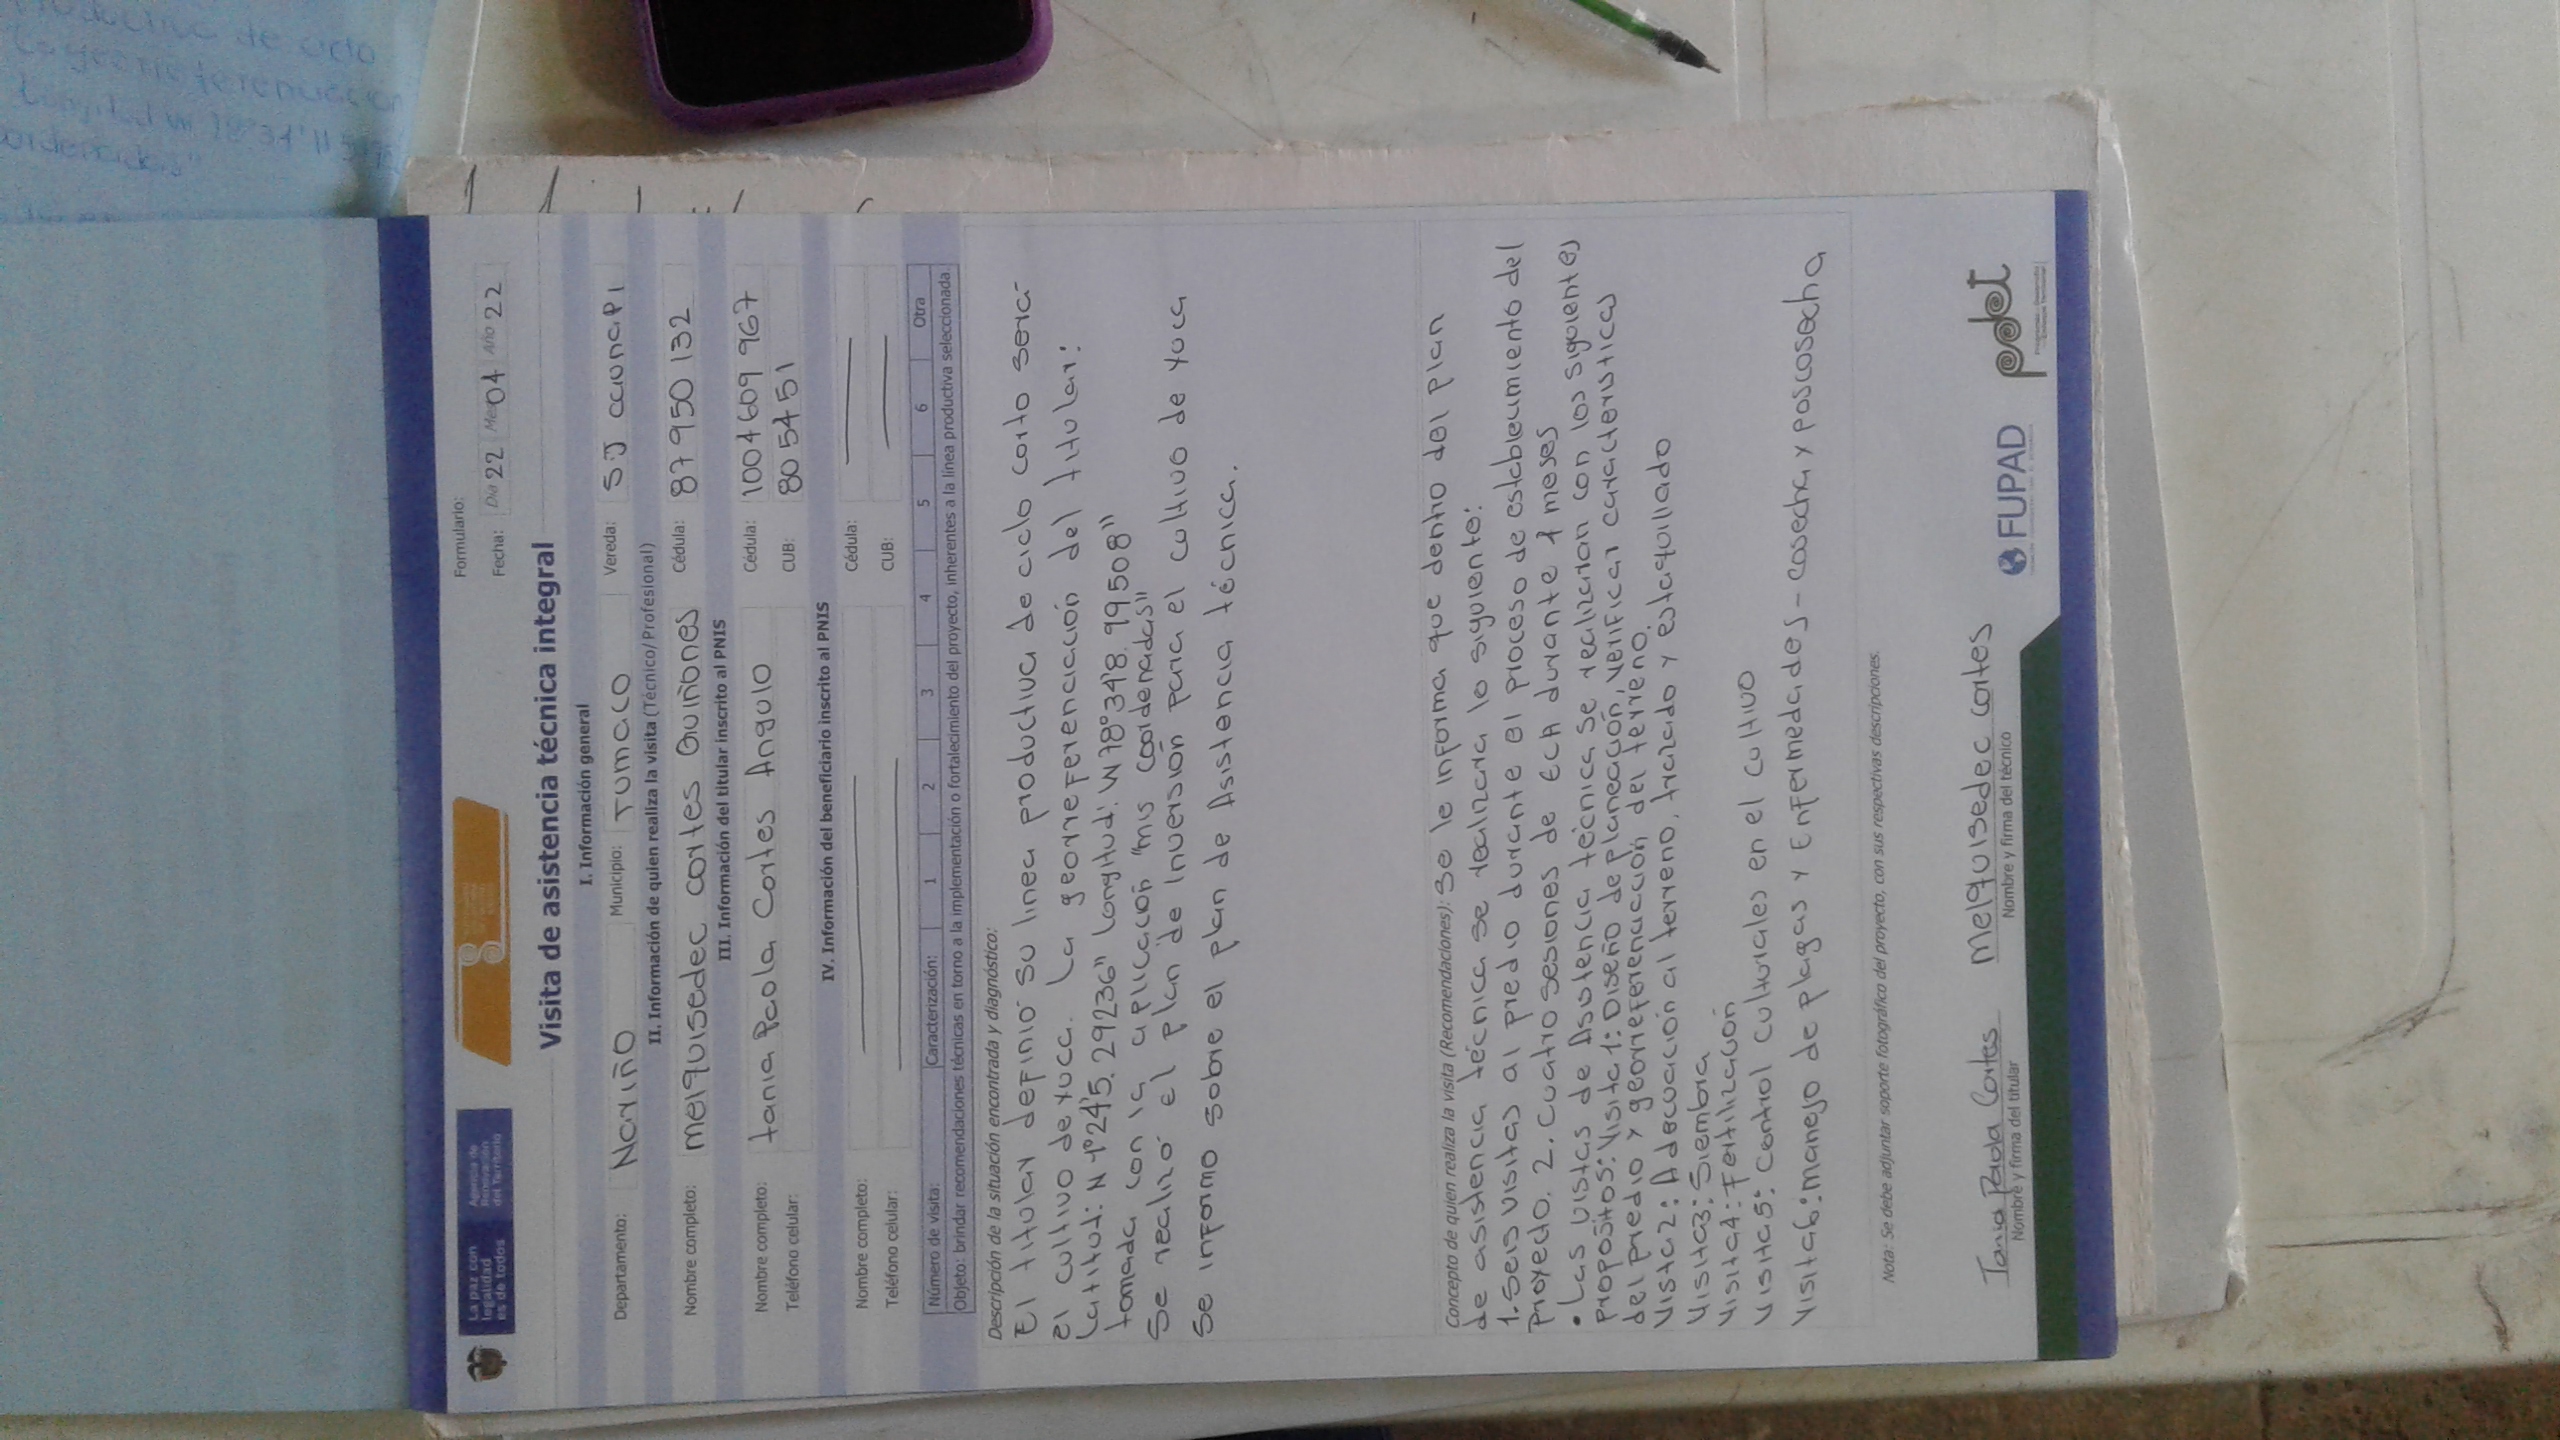 La paz con
legalidad
es de todos
Agencia de
Renovación
del Territorio
Formulario:
Fecha: Día 22 Mes 04 Año 22
Visita de asistencia técnica integral
I. Información general
Departamento: Nariño Municipio: Tumaco Vereda: SJ caunapi
II. Información de quien realiza la visita (Técnico/Profesional)
Nombre completo: melquisedec cortes Quiñones Cédula: 87950132
III. Información del titular inscrito al PNIS
Nombre completo: tania Paola Cortes Angulo Cédula: 1004609967
Teléfono celular: CUB: 8054551
IV. Información del beneficiario inscrito al PNIS
Nombre completo: Cédula:
Teléfono celular: CUB:
Número de visita: Caracterización: 1 2 3 4 5 6 Otra
Objeto: brindar recomendaciones técnicas en torno a la implementación o fortalecimiento del proyecto, inherentes a la línea productiva seleccionada.
Descripción de la situación encontrada y diagnóstico:
El titular definió su linea productiva de ciclo corto será
el cultivo de yuca. La georreferenciación del titular:
Latitud: N 1°24'5.29236" Longitud: W78°34'8.99508"
tomada con la aplicación "mis coordenadas"
Se realizó el plan de inversión para el cultivo de yuca
Se informo sobre el plan de Asistencia técnica.
Concepto de quien realiza la visita (Recomendaciones): Se le informa que dentro del plan
de asistencia técnica se realizara lo siguiente:
1. Seis visitas al predio durante el proceso de establecimiento del
Proyecto. 2. Cuatro sesiones de ECA durante 4 meses
• Las vistas de Asistencia técnica se realizaran con los siguientes
propositos: Visita 1: Diseño de planeación, verificar caracteristicas
del predio y georreferenciación del terreno.
Visita 2: Adecuación al terreno, trazado y estaquillado
Visita3: Siembra
Visita4: Fertilización
Visita5: Control culturales en el cultivo
Visita6: manejo de plagas y Enfermedades - cosecha y poscosecha
Nota: Se debe adjuntar soporte fotográfico del proyecto, con sus respectivas descripciones.
Tania Paola Cortes melquisedec cortes
Nombre y firma del titular Nombre y firma del técnico
FUPAD pdet
Productiva de ciclo
La georreferenciacion
Longitud W 78°34'11
coordenadas"